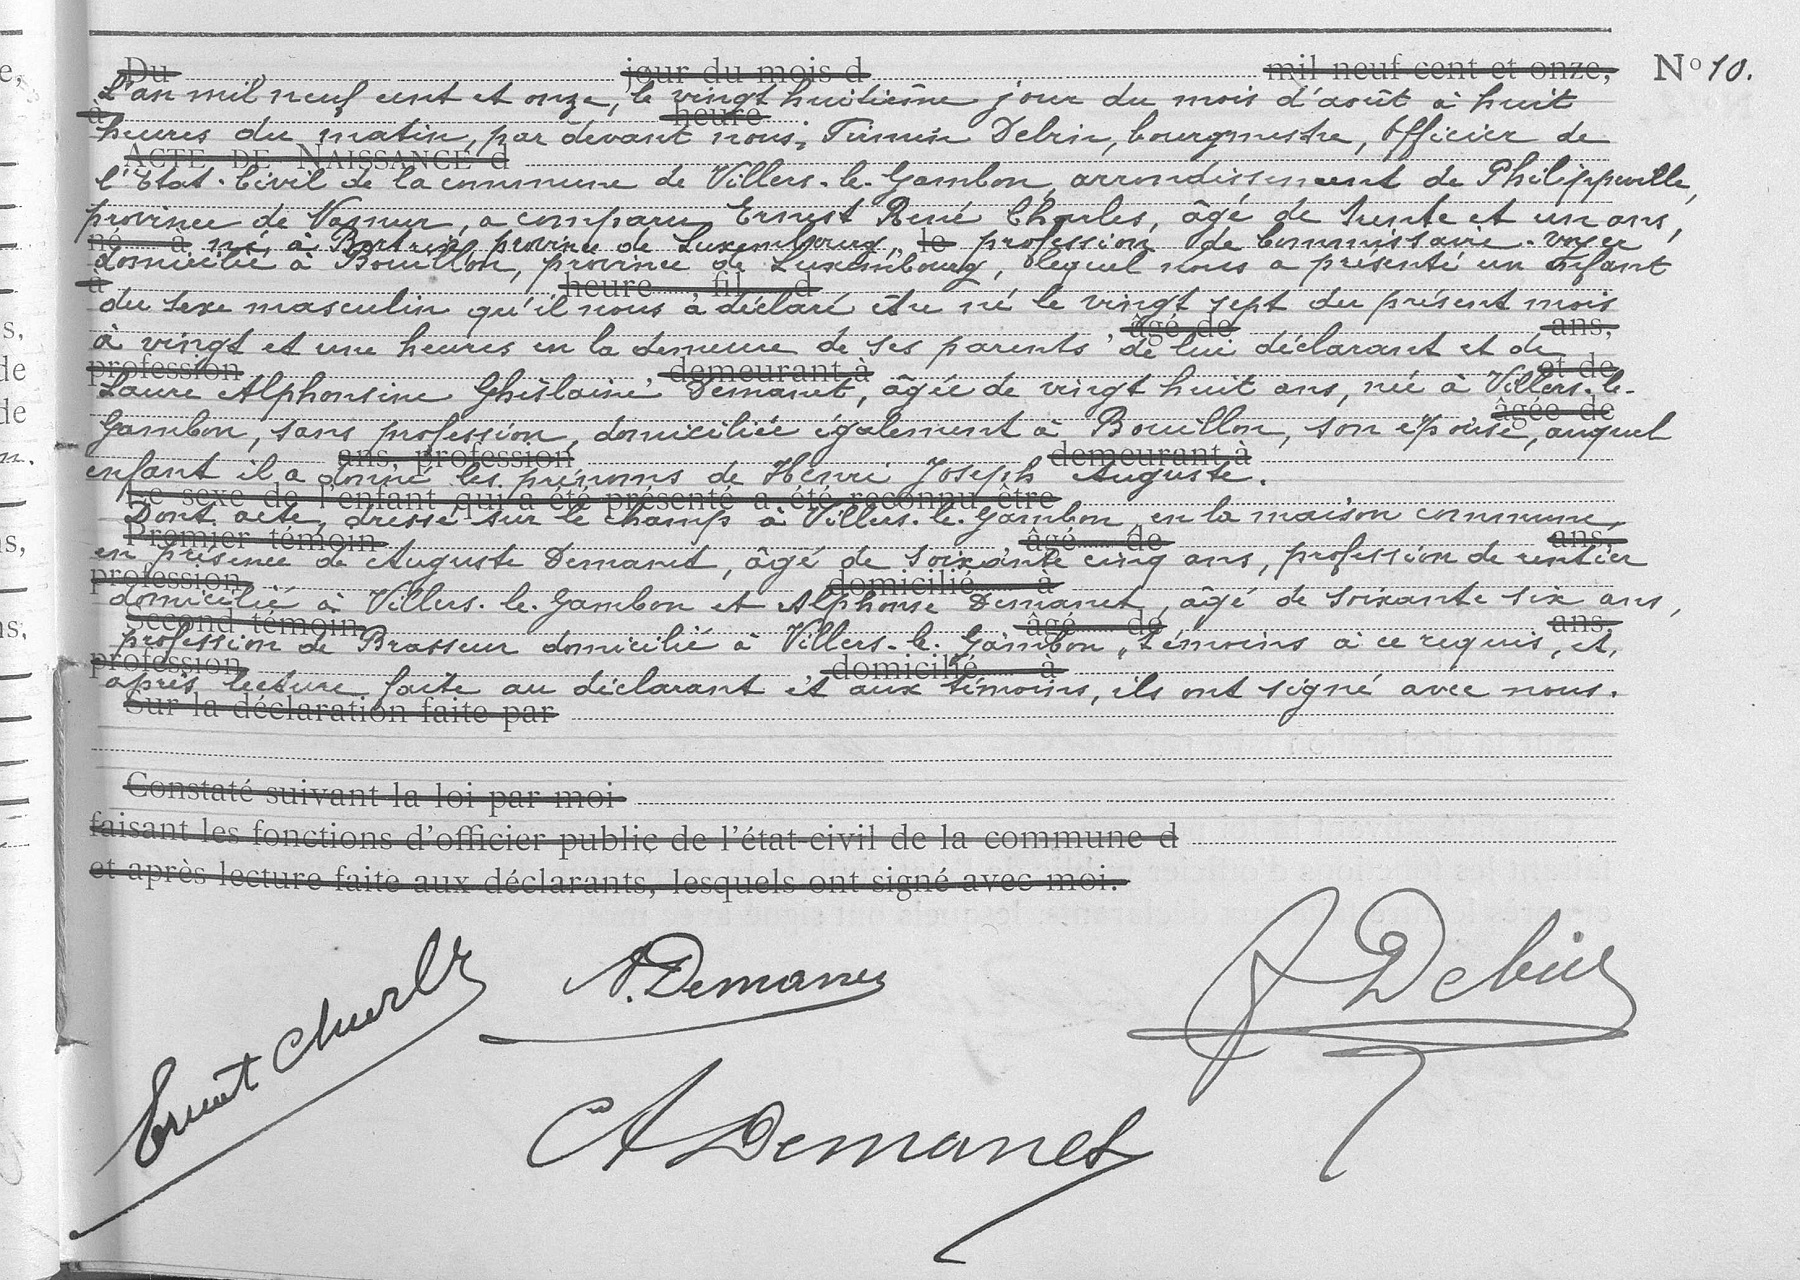 Du jour du mois d mil neuf cent et onze, N° 10.
L'an mil neuf cent et onze, le vingt huitième jour du mois d'août à huit
à heure
heures du matin, par devant nous, Firmin Debrin, bourgmestre, Officier de
ACTE DE NAISSANCE d
l'Etat-Civil de la commune de Villers-le-Gambon, arrondissement de Philippeville,
province de Namur, a comparu Ernest René Charles, âgé de trente et un ans,
né à né à Bertrix, province de Luxembourg, le profession de Commissaire-voyer
domicilié à Bouillon, province de Luxembourg, lequel nous a présenté un enfant
à heure , fil d
du sexe masculin qu'il nous a déclaré être né le vingt sept du présent mois
âgé de ans,
à vingt et une heures en la demeure de ses parents, de lui déclarant et de
profession demeurant à et de
Laure Alphonsine Ghislaine Demanet, âgée de vingt huit ans, née à Villers-le-
âgée de
Gambon, sans profession, domiciliée également à Bouillon, son épouse, auquel
ans, profession demeurant à
enfant il a donné les prénoms de Henri Joseph Auguste.
Le sexe de l'enfant qui a été présenté a été reconnu être
Dont acte, dressé sur le champ à Villers-le-Gambon en la maison commune,
Premier témoin âgé de ans,
en présence de Auguste Demanet, âgé de soixante cinq ans, profession de rentier
profession domicilié à
domicilié à Villers-le-Gambon et Alphonse Demanet, âgé de soixante six ans,
Second témoin âgé de ans,
profession de Brasseur domicilié à Villers-le-Gambon, témoins à ce requis, et,
profession domicilié à
après lecture faite au déclarant et aux témoins, ils ont signé avec nous.
Sur la déclaration faite par
Constaté suivant la loi par moi
faisant les fonctions d'officier public de l'état-civil de la commune d
et après lecture faite aux déclarants, lesquels ont signé avec moi.
Ernest Charles
A. Demanet
A Demanet